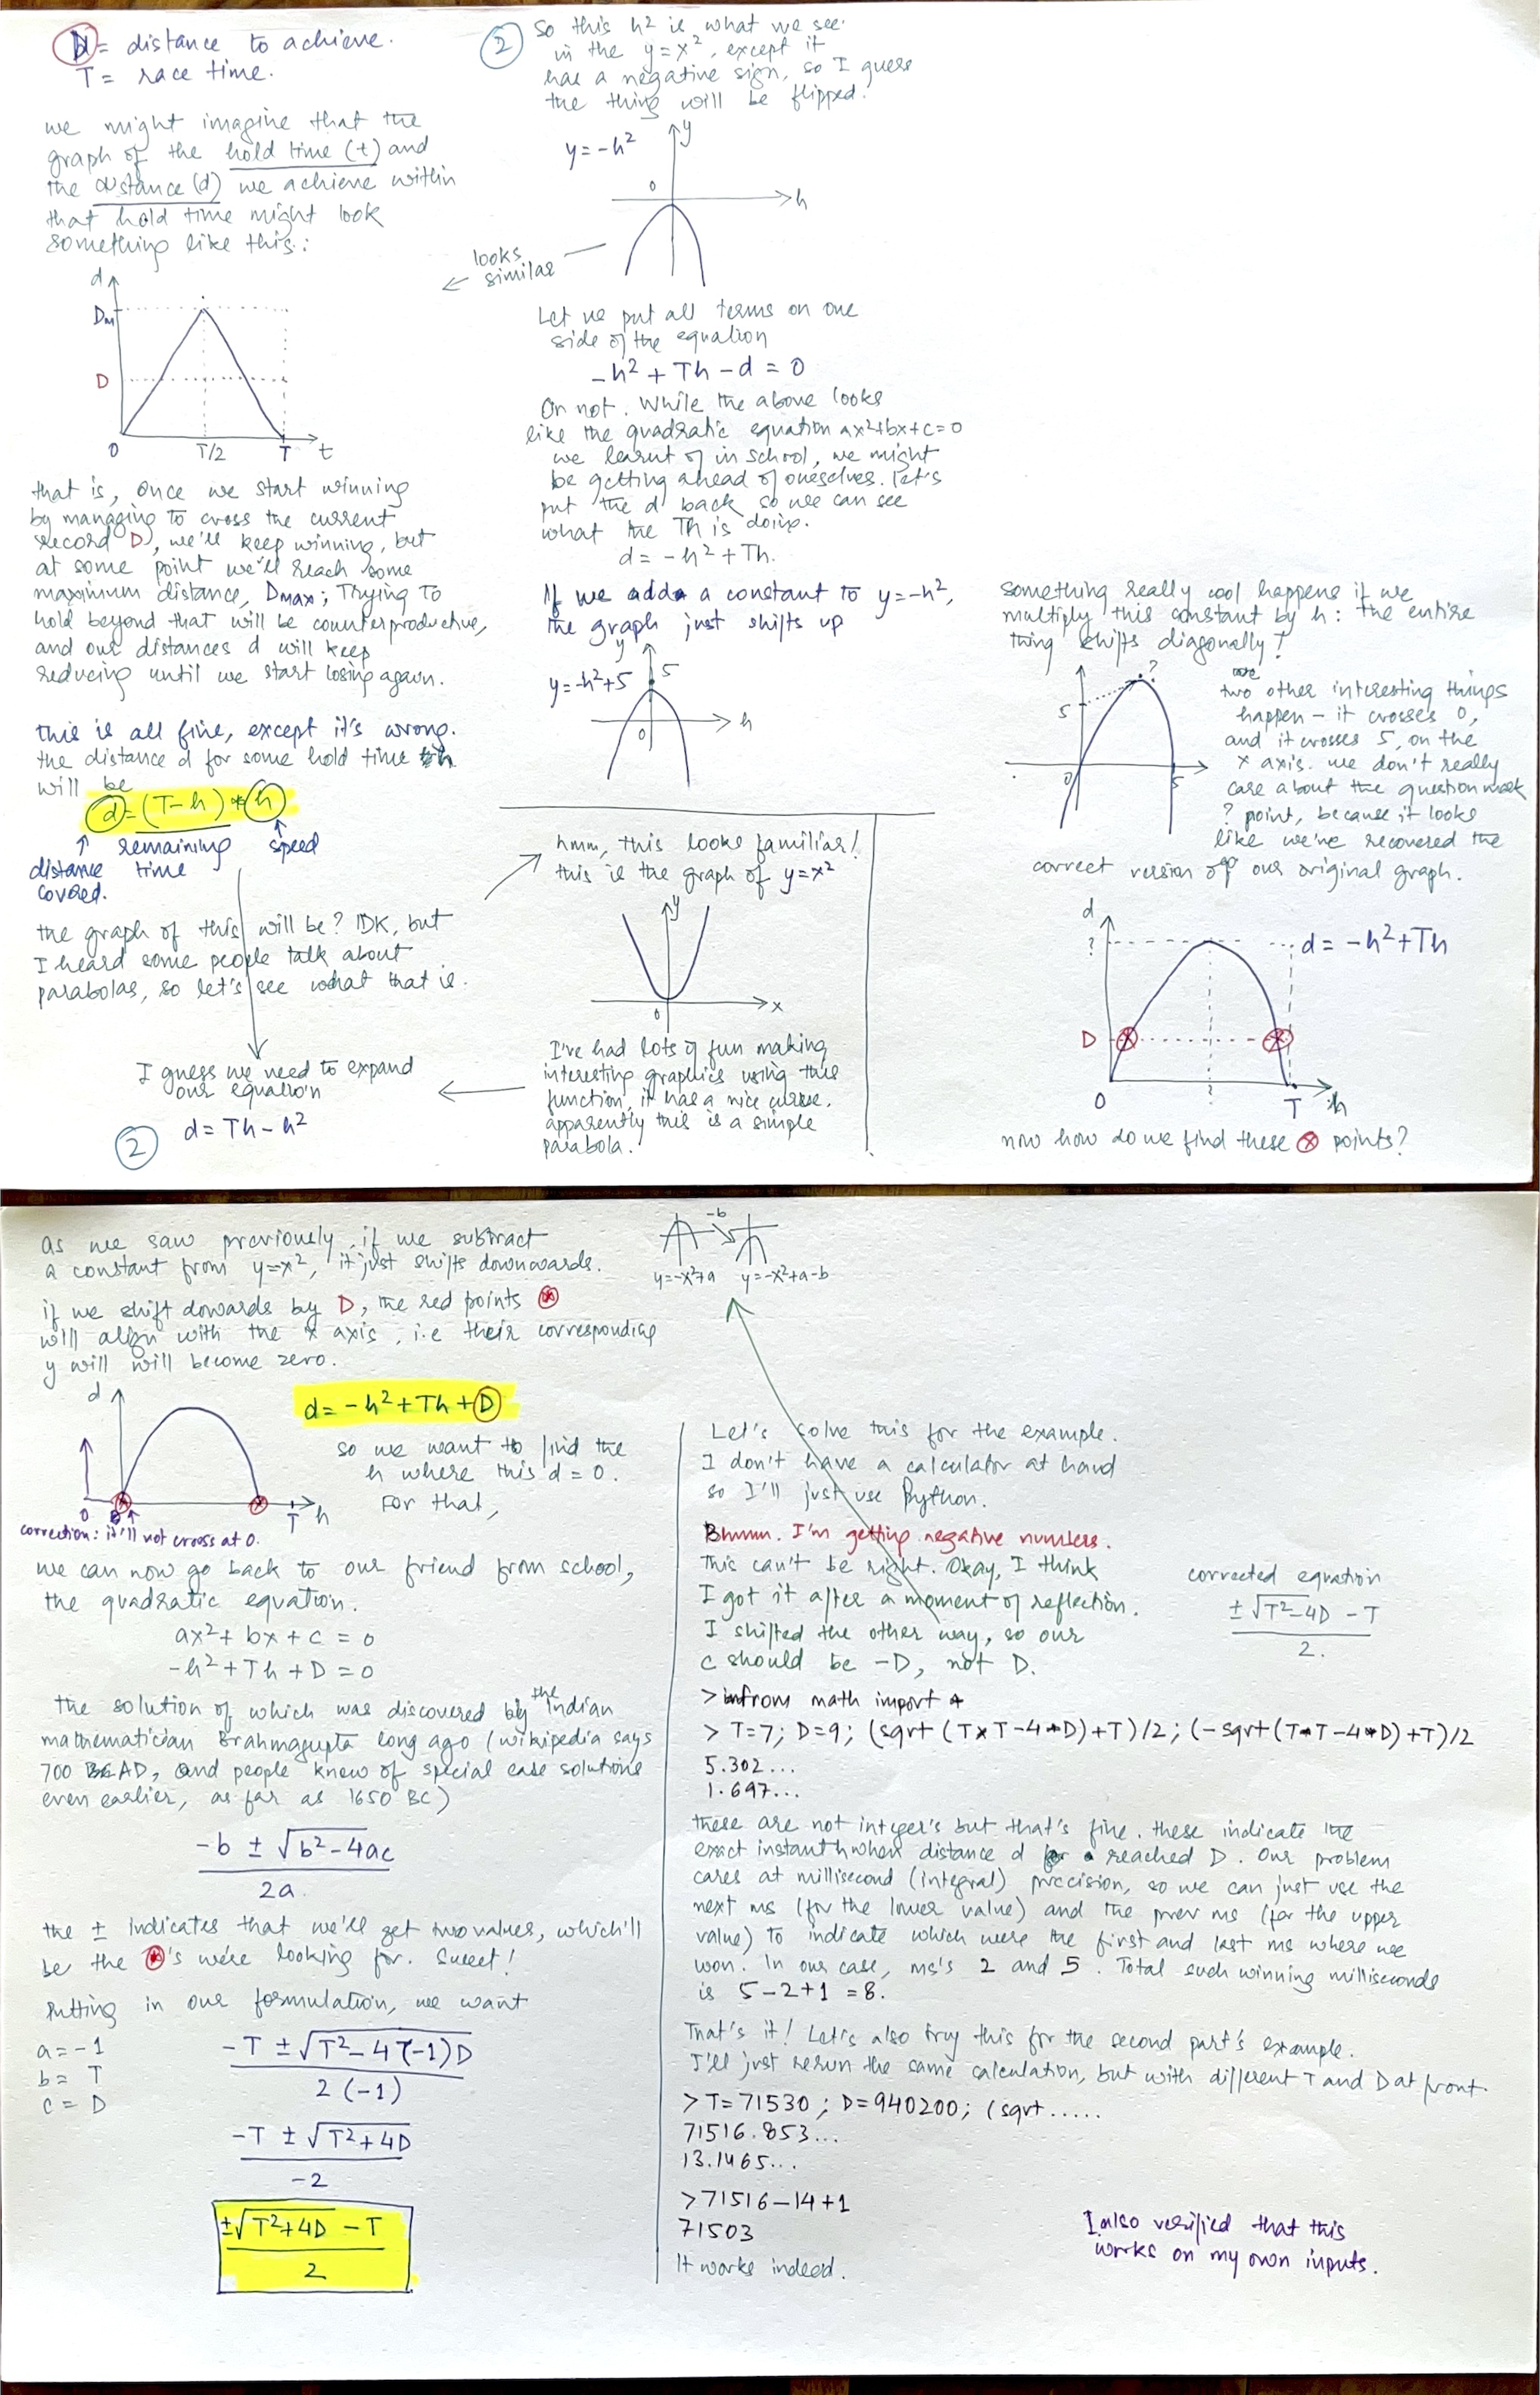 D = distance to achieve.
T = race time.
we might imagine that the
graph of the hold time (t) and
the distance (d) we achieve within
that hold time might look
something like this:
d
DM
D
0
T/2
T
t
that is, once we start winning
by managing to cross the current
record D, we'll keep winning, but
at some point we'll reach some
maximum distance, Dmax; Trying to
hold beyond that will be counterproductive,
and our distances d will keep
reducing until we start losing again.
this is all fine, except it's wrong.
the distance d for some hold time h
will be
d = (T-h) * h
distance
covered.
remaining
time
speed
the graph of this will be? IDK, but
I heard some people talk about
parabolas, so let's see what that is.
I guess we need to expand
our equation
d = Th - h²
2
hmm, this looks familiar!
this is the graph of y=x²
y
0
x
I've had lots of fun making
interesting graphics using this
function, it has a nice curve.
apparently this is a simple
parabola.
2
So this h² is what we see
in the y=x², except it
has a negative sign, so I guess
the thing will be flipped.
y=-h²
y
0
h
looks
similar
Let us put all terms on one
side of the equation
-h² + Th - d = 0
Or not. While the above looks
like the quadratic equation ax²+bx+c=0
we learnt of in school, we might
be getting ahead of ourselves. let's
put the d back so we can see
what the Th is doing.
d = -h² + Th.
If we add a constant to y=-h²,
the graph just shifts up
y
5
y=-h²+5
0
h
something really cool happens if we
multiply this constant by h: the entire
thing shifts diagonally!
?
5
0
5
two other interesting things
happen – it crosses 0,
and it crosses 5, on the
x axis. we don't really
care about the question mark
? point, because it looks
like we've recovered the
correct version of our original graph.
d
?
d = -h²+Th
D
0
?
T
h
now how do we find these ⊗ points?
as we saw previously, if we subtract
a constant from y=x², it just shifts downwards.
-b
y=-x²+a
y=-x²+a-b
if we shift dowards by D, the red points ⊗
will align with the x axis, i.e their corresponding
y will will become zero.
d
0
T
h
correction: it'll not cross at 0.
d = -h² + Th + D
so we want to find the
h where this d = 0.
For that,
we can now go back to our friend from school,
the quadratic equation.
ax² + bx + c = 0
-h² + Th + D = 0
the solution of which was discovered by the Indian
mathematician Brahmagupta long ago (wikipedia says
700 AD, and people knew of special case solutions
even earlier, as far as 1650 BC)
-b ± √b²-4ac
2a
the ± indicates that we'll get two values, which'll
be the ⊗'s we're looking for. Sweet!
Putting in our formulation, we want
a = -1
b = T
c = D
-T ± √T²-4(-1)D
2(-1)
-T ± √T²+4D
-2
±√T²+4D - T
2
Let's solve this for the example.
I don't have a calculator at hand
so I'll just use Python.
Hmmm. I'm getting negative numbers.
This can't be right. Okay, I think
I got it after a moment of reflection.
I shifted the other way, so our
c should be -D, not D.
corrected equation
±√T²-4D - T
2.
> from math import *
> T=7; D=9; (sqrt (T*T-4*D)+T)/2; (-sqrt(T*T-4*D)+T)/2
5.302...
1.697...
these are not integer's but that's fine. these indicate the
exact instant h when distance d reached D. Our problem
cares at millisecond (integral) precision, so we can just use the
next ms (for the lower value) and the prev ms (for the upper
value) to indicate which were the first and last ms where we
won. In our case, ms's 2 and 5. Total such winning milliseconds
is 5-2+1 = 8.
That's it! Let's also try this for the second part's example.
I'll just rerun the same calculation, but with different T and D at front.
> T=71530; D=940200; (sqrt.....
71516.853...
13.1465...
> 71516-14+1
71503
It works indeed.
I also verified that this
works on my own inputs.